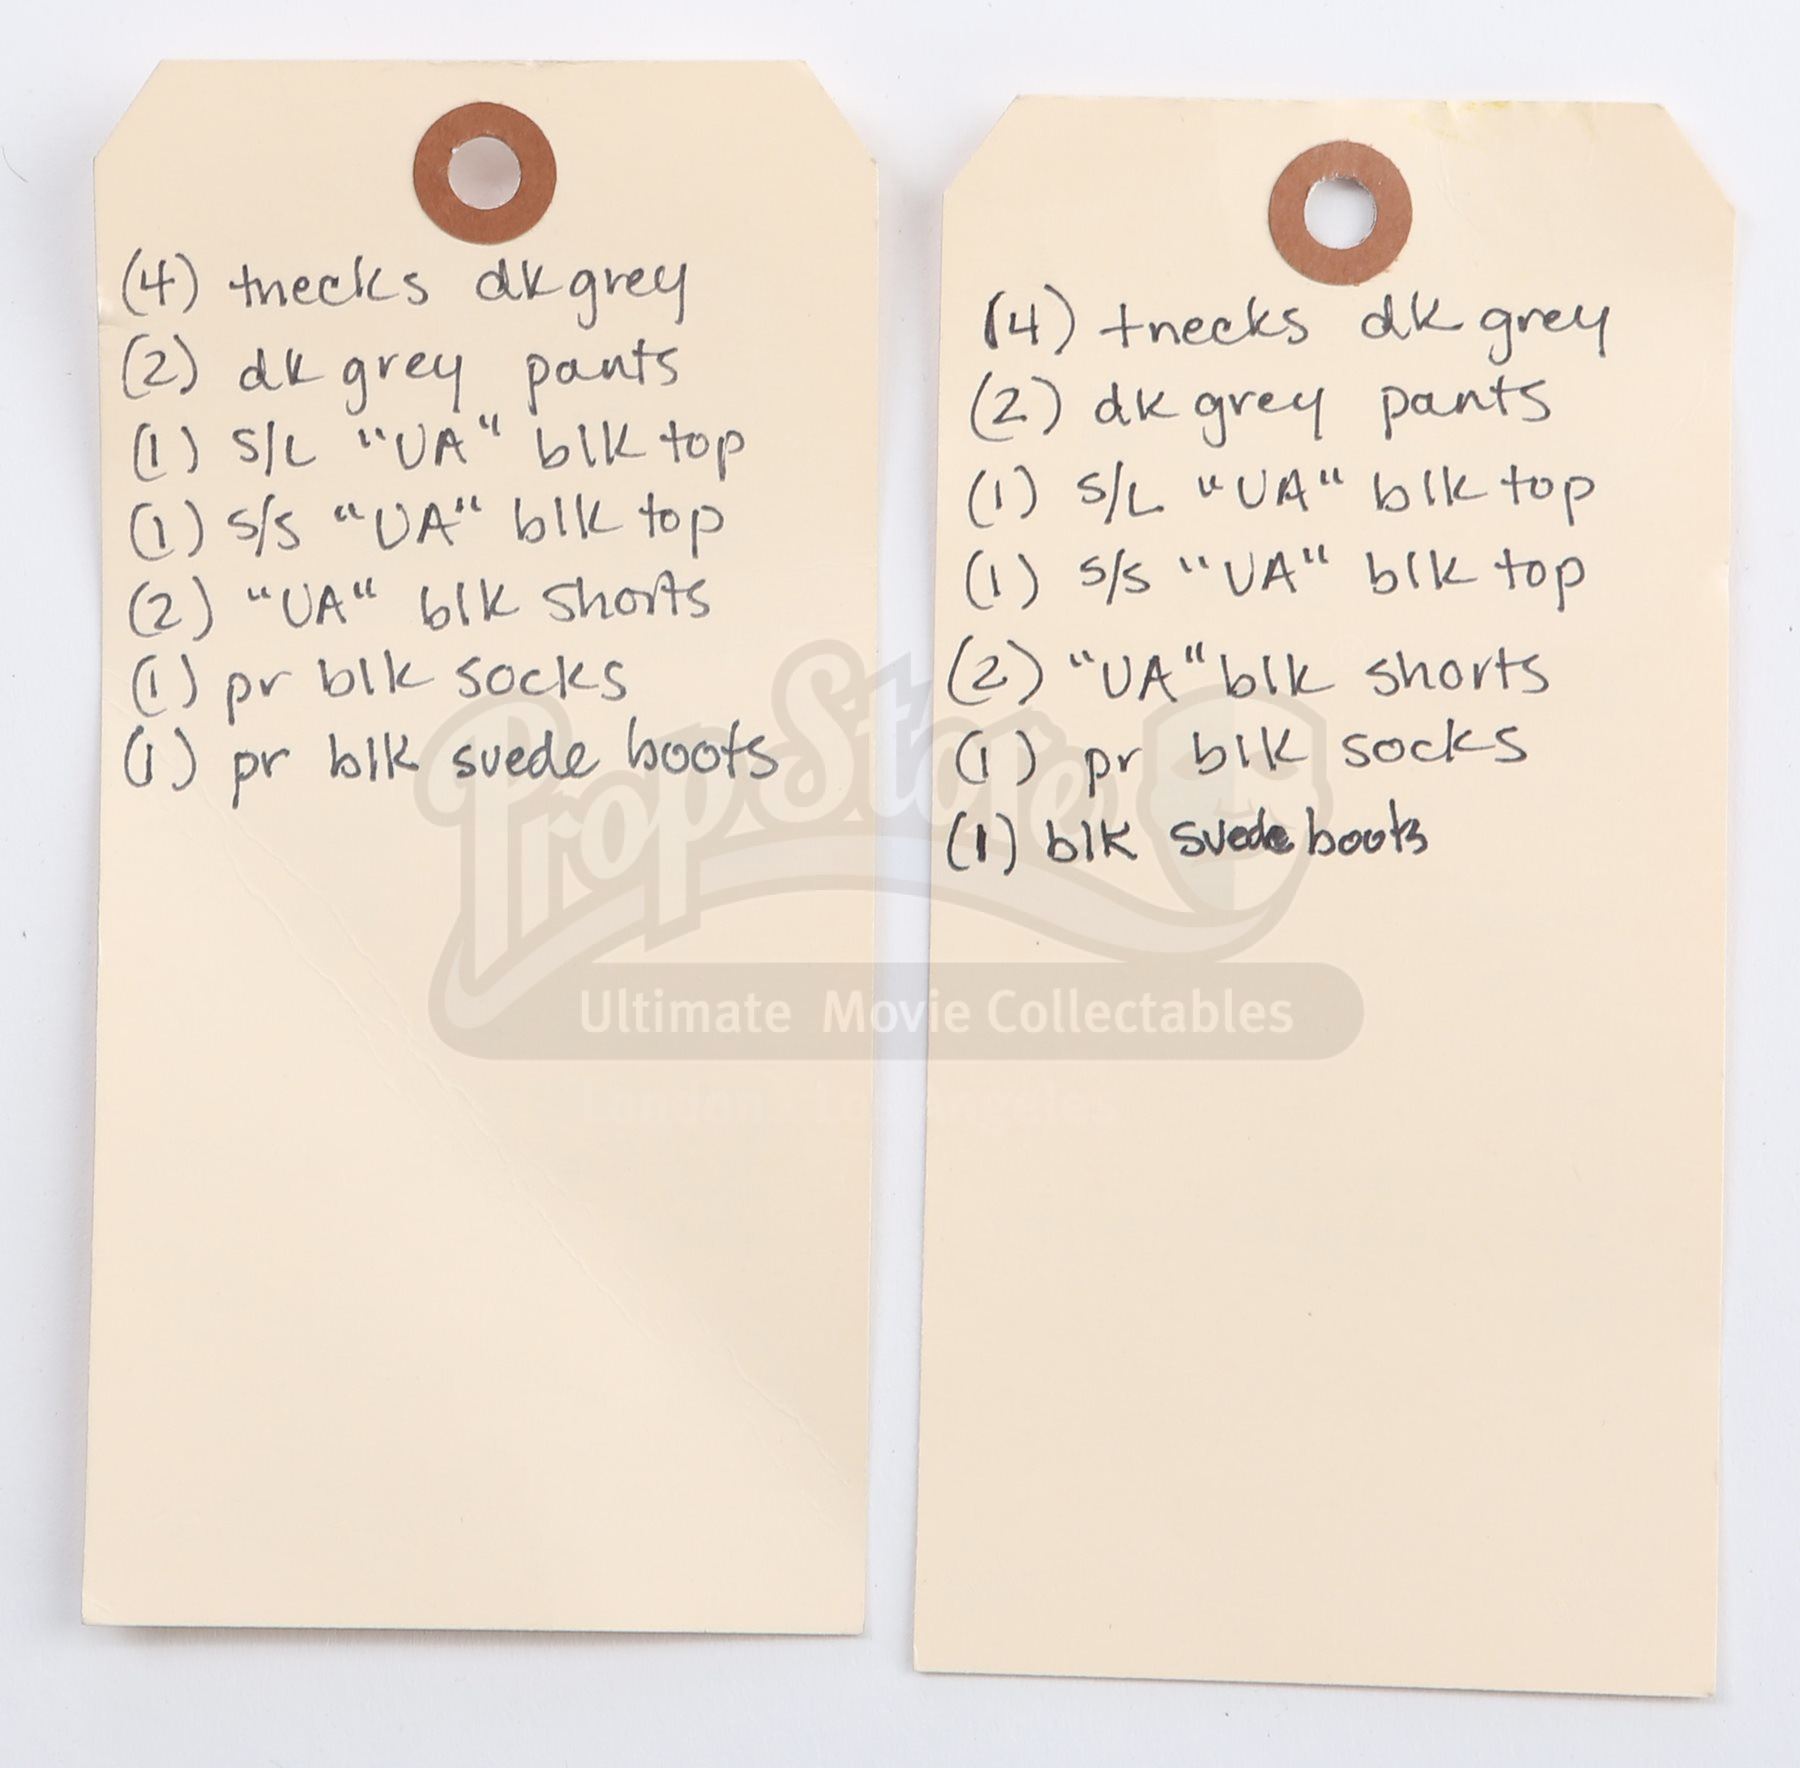 (4) tnecks dk grey
(2) dk grey pants
(1) s/L "UA" blk top
(1) s/s "UA" blk top
(2) "UA" blk shorts
(1) pr blk socks
(1) pr blk suede boots
(4) tnecks dk grey
(2) dk grey pants
(1) s/L "UA" blk top
(1) s/s "UA" blk top
(2) "UA" blk shorts
(1) pr blk socks
(1) blk suede boots
Prop Store
Ultimate Movie Collectables
London - Los Angeles